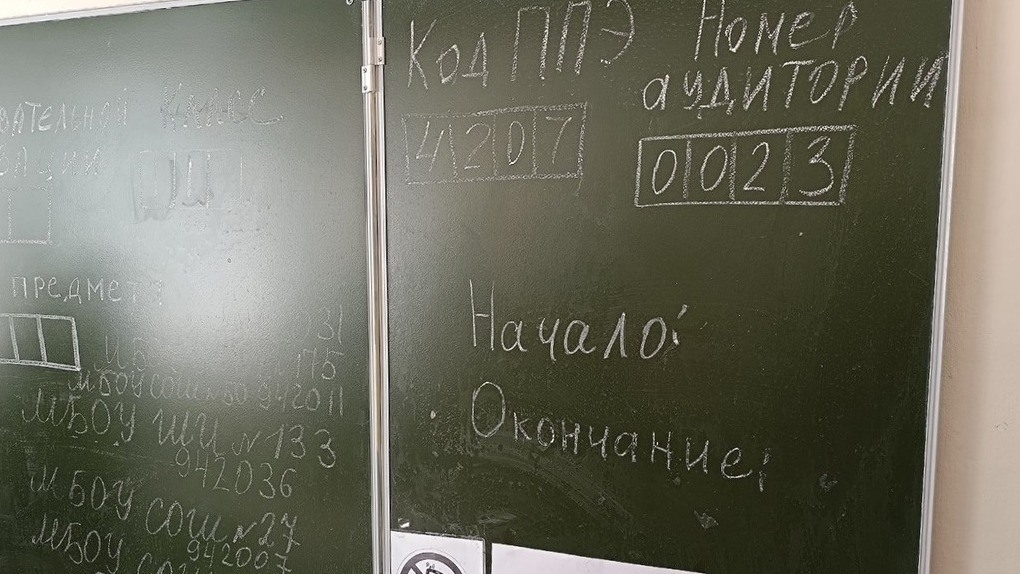 ВАТЕЛЬНОЙ КЛАСС
ЗАЦИИ
ПРЕДМЕТА
31
175
942011
МБОУ ШИ №133
942036
МБОУ СОШ №27
942007
МБОУ
Код ППЭ
4207
Номер
аудитории
0023
Начало:
Окончание: